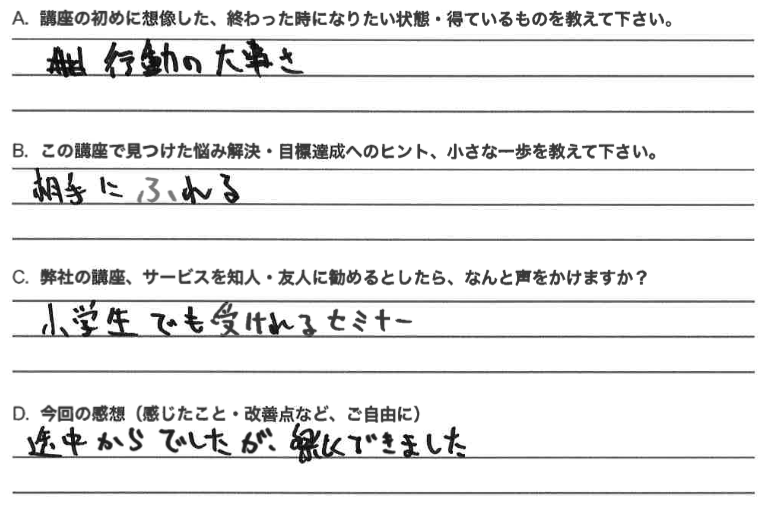 A. 講座の初めに想像した、終わった時になりたい状態・得ているものを教えて下さい。
行動の大事さ
B. この講座で見つけた悩み解決・目標達成へのヒント、小さな一歩を教えて下さい。
相手にふれる
C. 弊社の講座、サービスを知人・友人に勧めるとしたら、なんと声をかけますか？
小学生でも受けれるセミナー
D. 今回の感想（感じたこと・改善点など、ご自由に）
途中からでしたが、できました